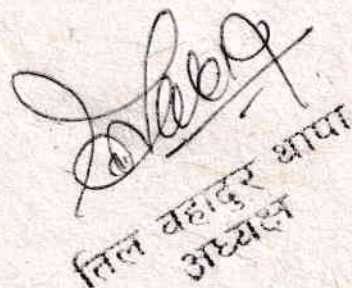 तिल वहादुर थापा
अध्यक्ष